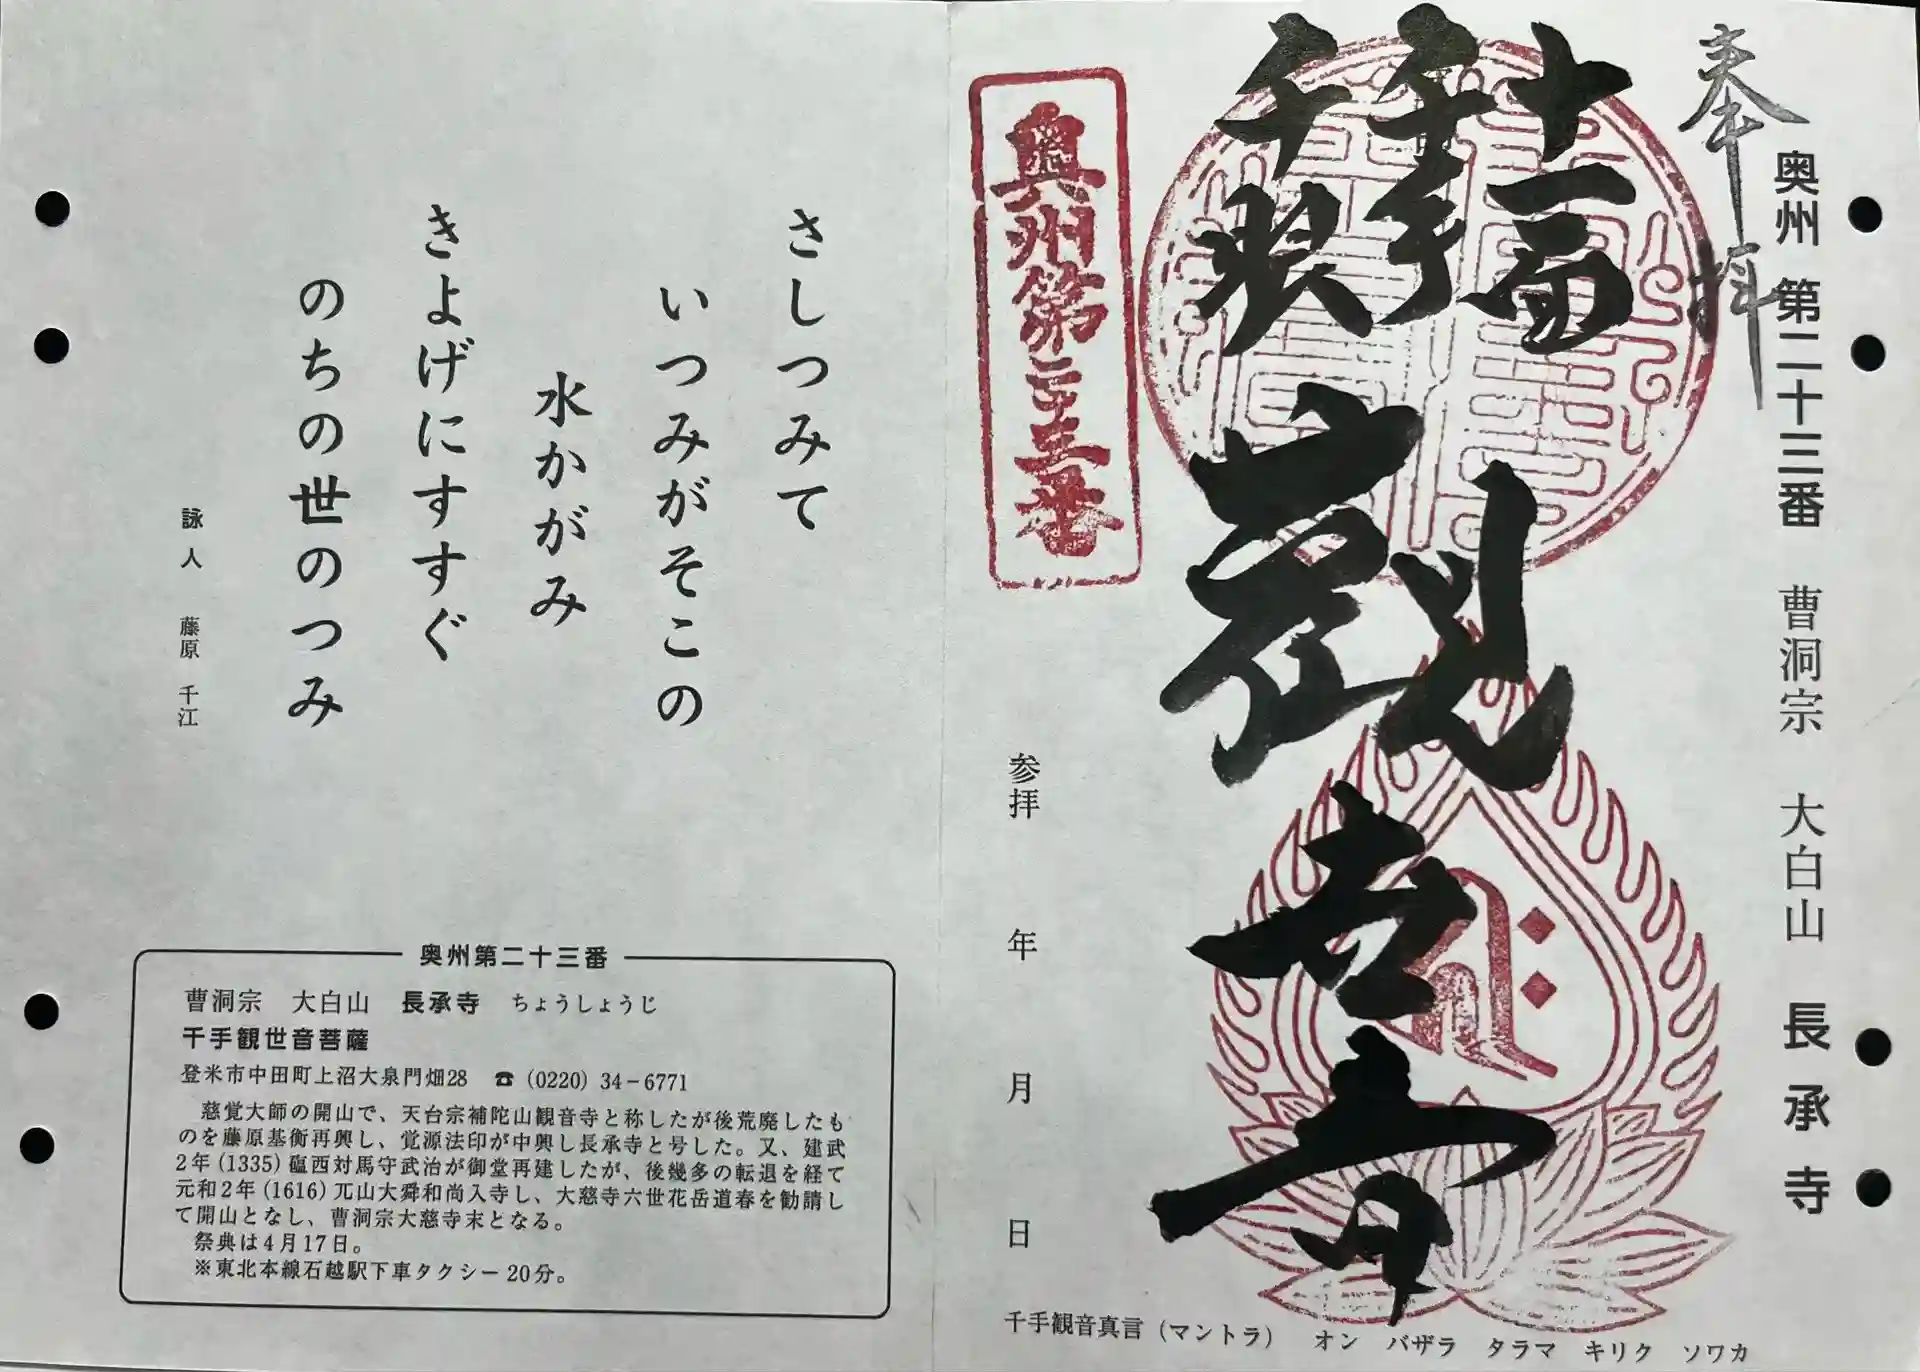 奉拝
奥州 第二十三番 曹洞宗 大白山 長承寺
十一面
千手
千眼
観世音
奥州第二十三番
参拝 年 月 日
千手観音真言(マントラ) オン バザラ タラマ キリク ソワカ
さしつみて
いつみがそこの
水かがみ
きよげにすすぐ
のちの世のつみ
詠人 藤原 千江
奥州第二十三番
曹洞宗 大白山 長承寺 ちょうしょうじ
千手観世音菩薩
登米市中田町上沼大泉門畑28 ☎ (0220) 34-6771
慈覚大師の開山で、天台宗補陀山観音寺と称したが後荒廃したも
のを藤原基衡再興し、覚源法印が中興し長承寺と号した。又、建武
2年(1335)臨西対馬守武治が御堂再建したが、後幾多の転退を経て
元和2年(1616)兀山大舜和尚入寺し、大慈寺六世花岳道春を勧請し
て開山となし、曹洞宗大慈寺末となる。
祭典は4月17日。
※東北本線石越駅下車タクシー20分。